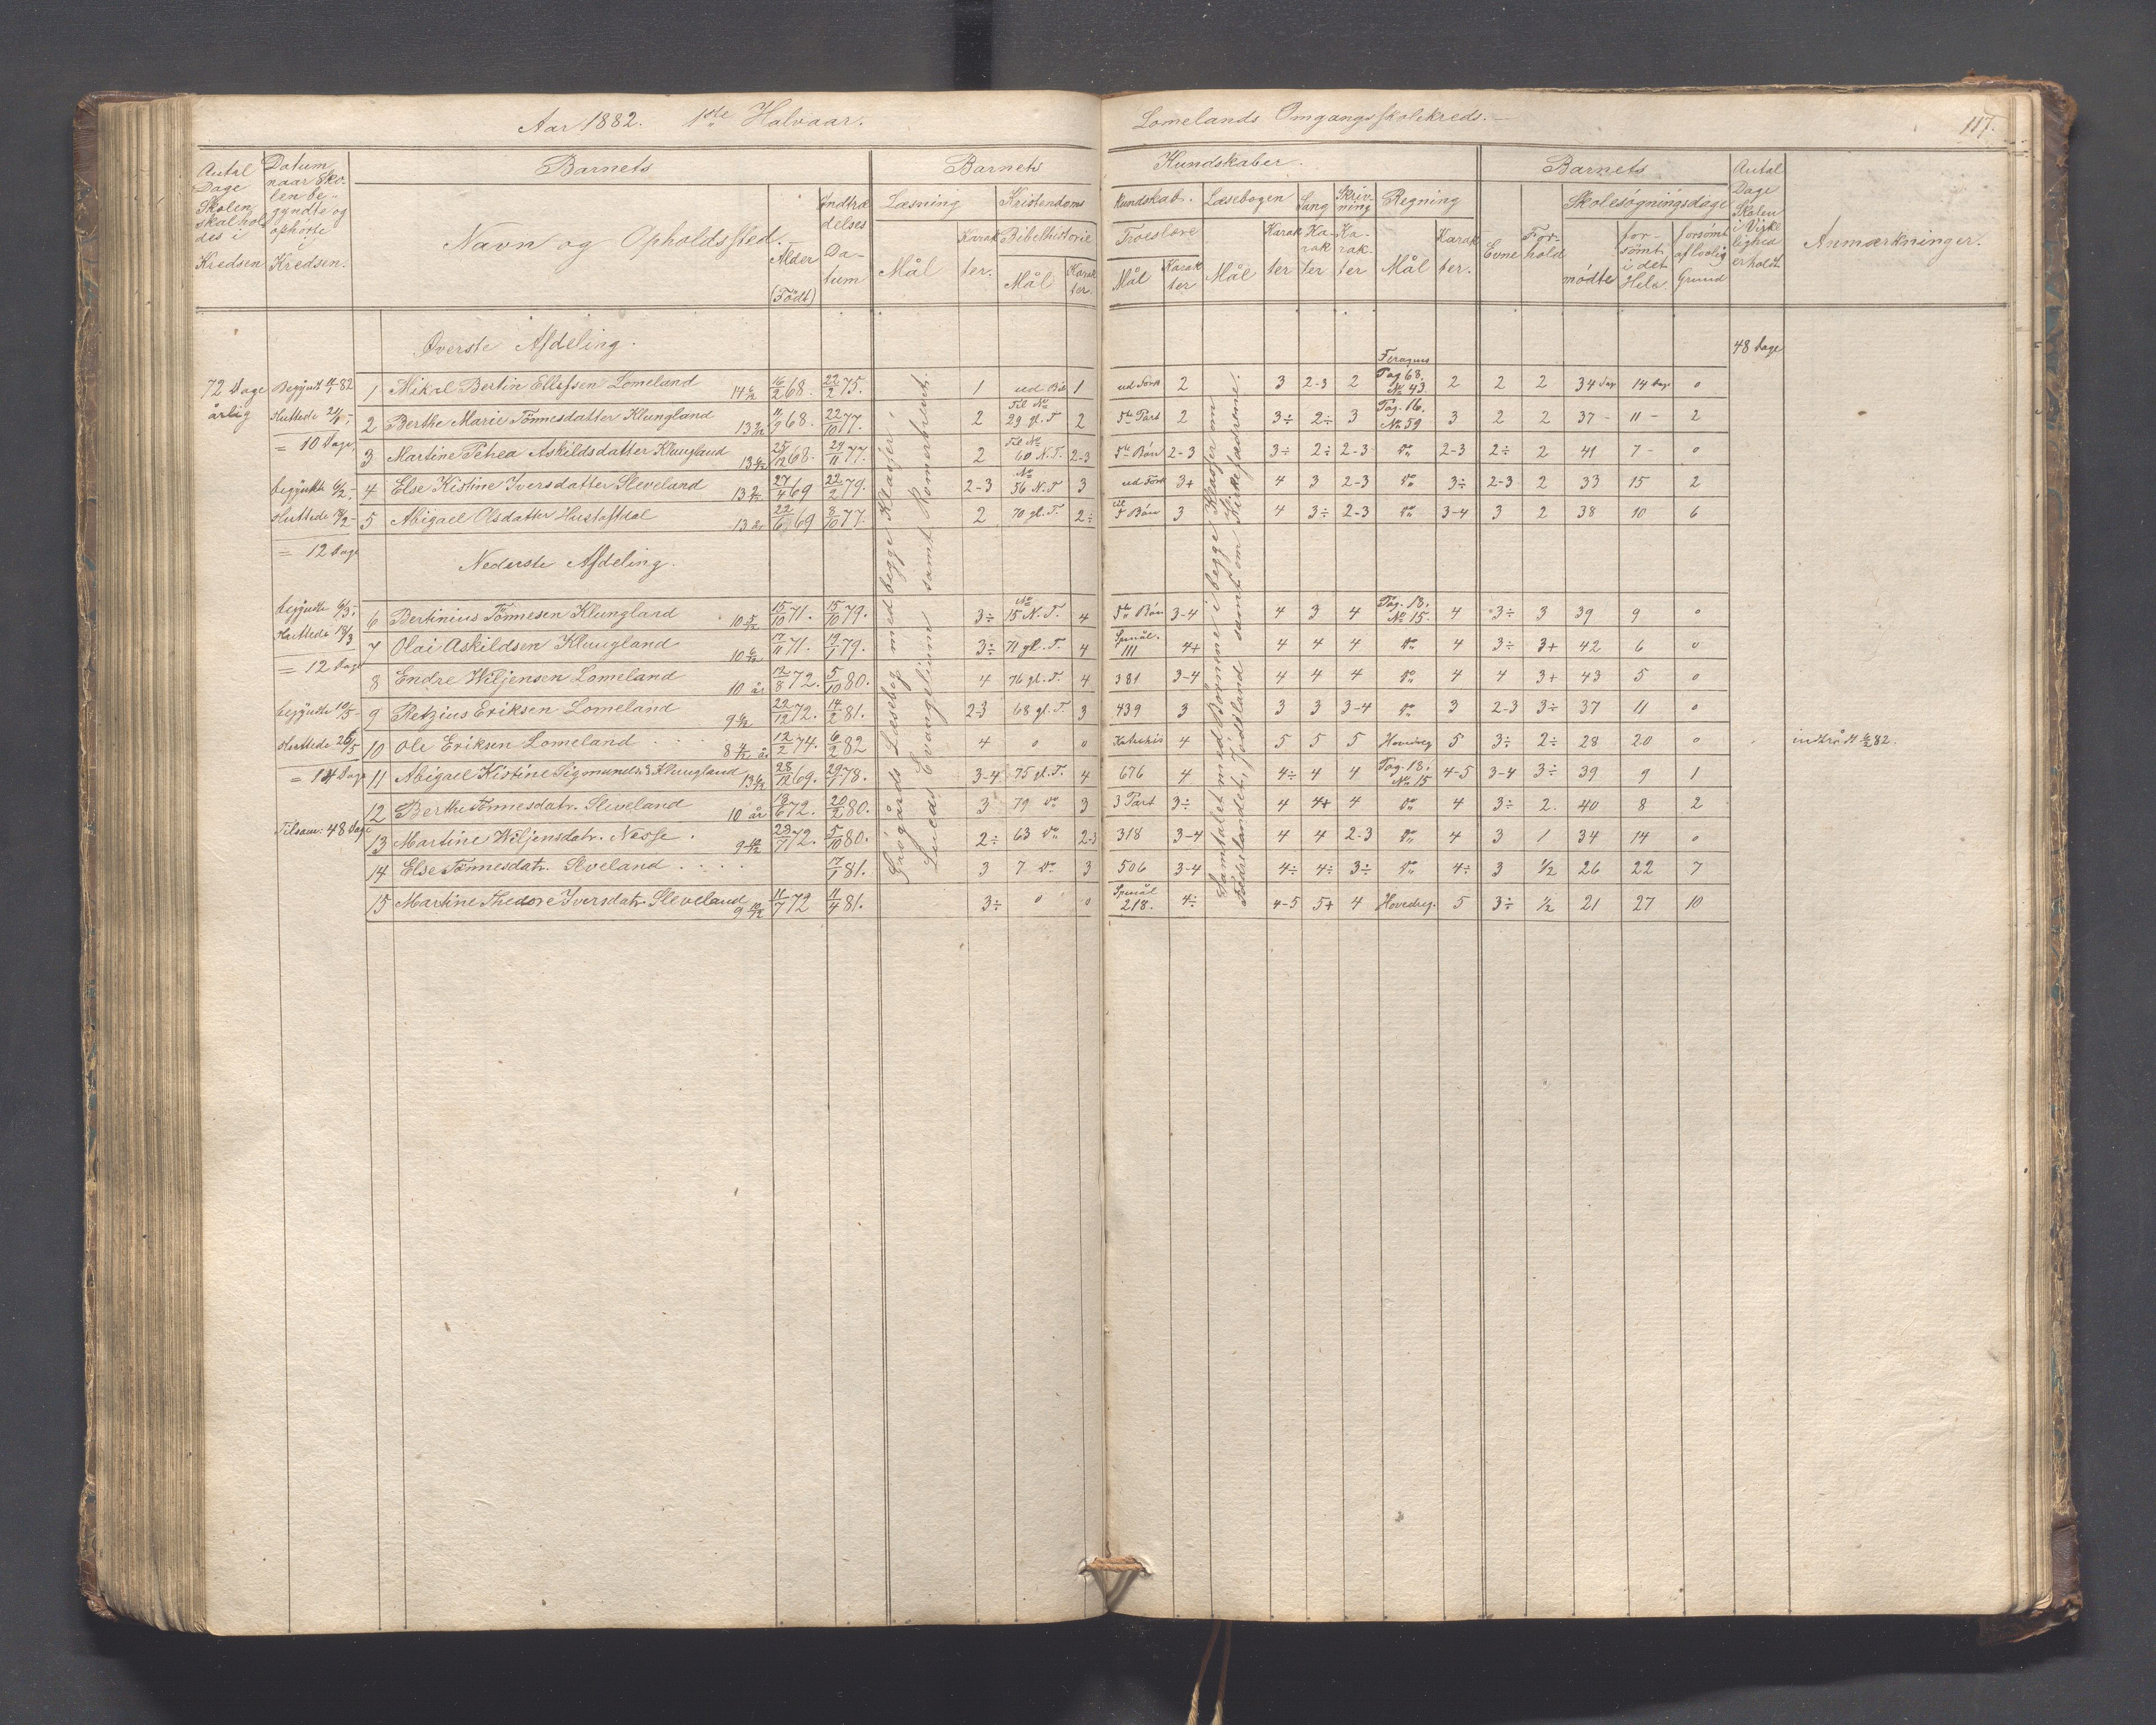 Aar 1882. 1ste Halvaar.
Lomelands Omgangsskolekreds.
117.
Antal Dage Skolen skal holdes i Kredsen
Datum naar Skolen begyndte og ophørte i Kredsen.
Barnets
Navn og Opholdssted.
Alder (Født)
Indtrædelses Datum
Barnets
Læsning
Mål
Karakter.
Kristendoms
Bibelhistorie
Mål
Karakter.
Kundskaber.
Kundskab.
Troeslære
Mål
Karakter
Læsebogen
Mål
Karakter
Sang
Karakter
Skrivning
Karakter
Regning
Mål
Karakter.
Barnets
Evne
Forhold
Skolesøgningsdage
mødte
forsømt i det Hele
forsømt af lovlig Grund
Antal Dage Skolen i Virkelighed erholdt
Anmærkninger.
Øverste Afdeling.
48 Dage
72 Dage årlig
Sluttede
= 10 Dage,
begyndte 6/2,
Sluttede 18/2
= 12 Dage
begyndte 6/3,
Sluttede 18/3
= 12 Dage
begyndte 10/5
Sluttede 26/5
= 14 Dage
Tilsam: 48 Dage
1 Mikal Bertin Ellefsen Lomeland 14 4/12 16/2 68. 22/2 75. 1 ud Bib 1 ud Fork 2 3 2-3 2 Feragus Pag 68. No 43. 2 2 2 34 Dag 14 Dag 0
2 Berthe Marie Tönnesdatter Klungland 11/9 68. 22/10 77. 2 Til No 29 gl. T 2 5te Part 2 3÷ 2÷ 3 Pag. 16. No 59 3 2 2 37 - 11 - 2
3 Martine Petrea Askildsdatter Klungland 25/12 68. 29/11 77. 2 Til No 60 N.T. 2-3 5te Bön 2-3 3÷ 2÷ 2-3 Do 2-3 2÷ 2 41 7 - 0
4 Else Kistine Iversdatter Sleveland 27/4 69 22/2 79. 2-3 No 56 N.T 3 ud Fork 3+ 4 3 2-3 Do 3÷ 2-3 2 33 15 2
5 Abigael Olsdatter Hustoftdal 13 år 22/6 69 8/10 77. 2 70 gl. T. 2÷ til 5 Bön 3 4 3÷ 2-3 Do 3-4 3 2 38 10 6
Nederste Afdeling.
6 Bertinius Tönnesen Klungland 10 5/12 15/10 71. 15/10 79. 3÷ No 15 N.T. 4 5te Bön 3-4 4 3 4 Pag. 13. No 15. 4 3÷ 3 39 9 0
7 Olai Askildsen Klungland 17/11 71. 19/1 79. 3÷ 71 gl. T. 4 Spmål. 111 4+ 4 4 4 Do 4 3÷ 3+ 42 6 0
8 Endre Wiljensen Lomeland 10 år 12/8 72. 5/10 80. 4 76 gl. T. 4 381 3-4 4 4 4 Do 4 4 3+ 43 5 0
9 Retzius Eriksen Lomeland 22/12 72. 14/2 81. 2-3 68 gl. T. 3 439 3 3 3 3-4 Do 3 2-3 3÷ 37 11 0
10 Ole Eriksen Lomeland 8 4/12 år 12/2 74. 6/2 82 4 0 0 Katekis 4 5 5 5 Hovedreg 5 3÷ 2÷ 28 20 0 indtrådt 6/2 82.
11 Abigael Kistine Sigmundsd Klungland 28/12 69. 29/1 78. 3-4 75 gl. T. 4 676 4 4÷ 4 4 Pag. 18. No 15 4-5 3-4 3÷ 39 9 1
12 Berthe Tönnesdatr. Sleveland 10 år 18/6 72. 20/2 80. 3 79 Do 3 3 Part 3÷ 4 4+ 4 Do 4 3÷ 2. 40 8 2
13 Martine Wiljensdatr. Nesse 9 10/12 29/7 72. 5/10 80. 2÷ 63 Do 2-3 318 3-4 4 4 2-3 Do 4 3 1 34 14 0
14 Else Tönnesdatr. Sleveland 17/1 81. 3 7 Do 3 506 3-4 4÷ 4÷ 3÷ Do 4÷ 3 1/2 26 22 7
15 Martine Thedore Iversdatr. Sleveland 9 10/12 11/7 72 11/4 81. 3÷ 0 0 Spmål 218. 4÷ 4-5 5+ 4 Hovedreg. 5 3÷ 1/2 21 27 10
Læsebog med begge Klasser,
Lucas Evangelium samt Romerbrevet.
Samtalet med Börnene i begge Klasser om
Fædrelandet, Jödeland samt om Kirkefædrene.